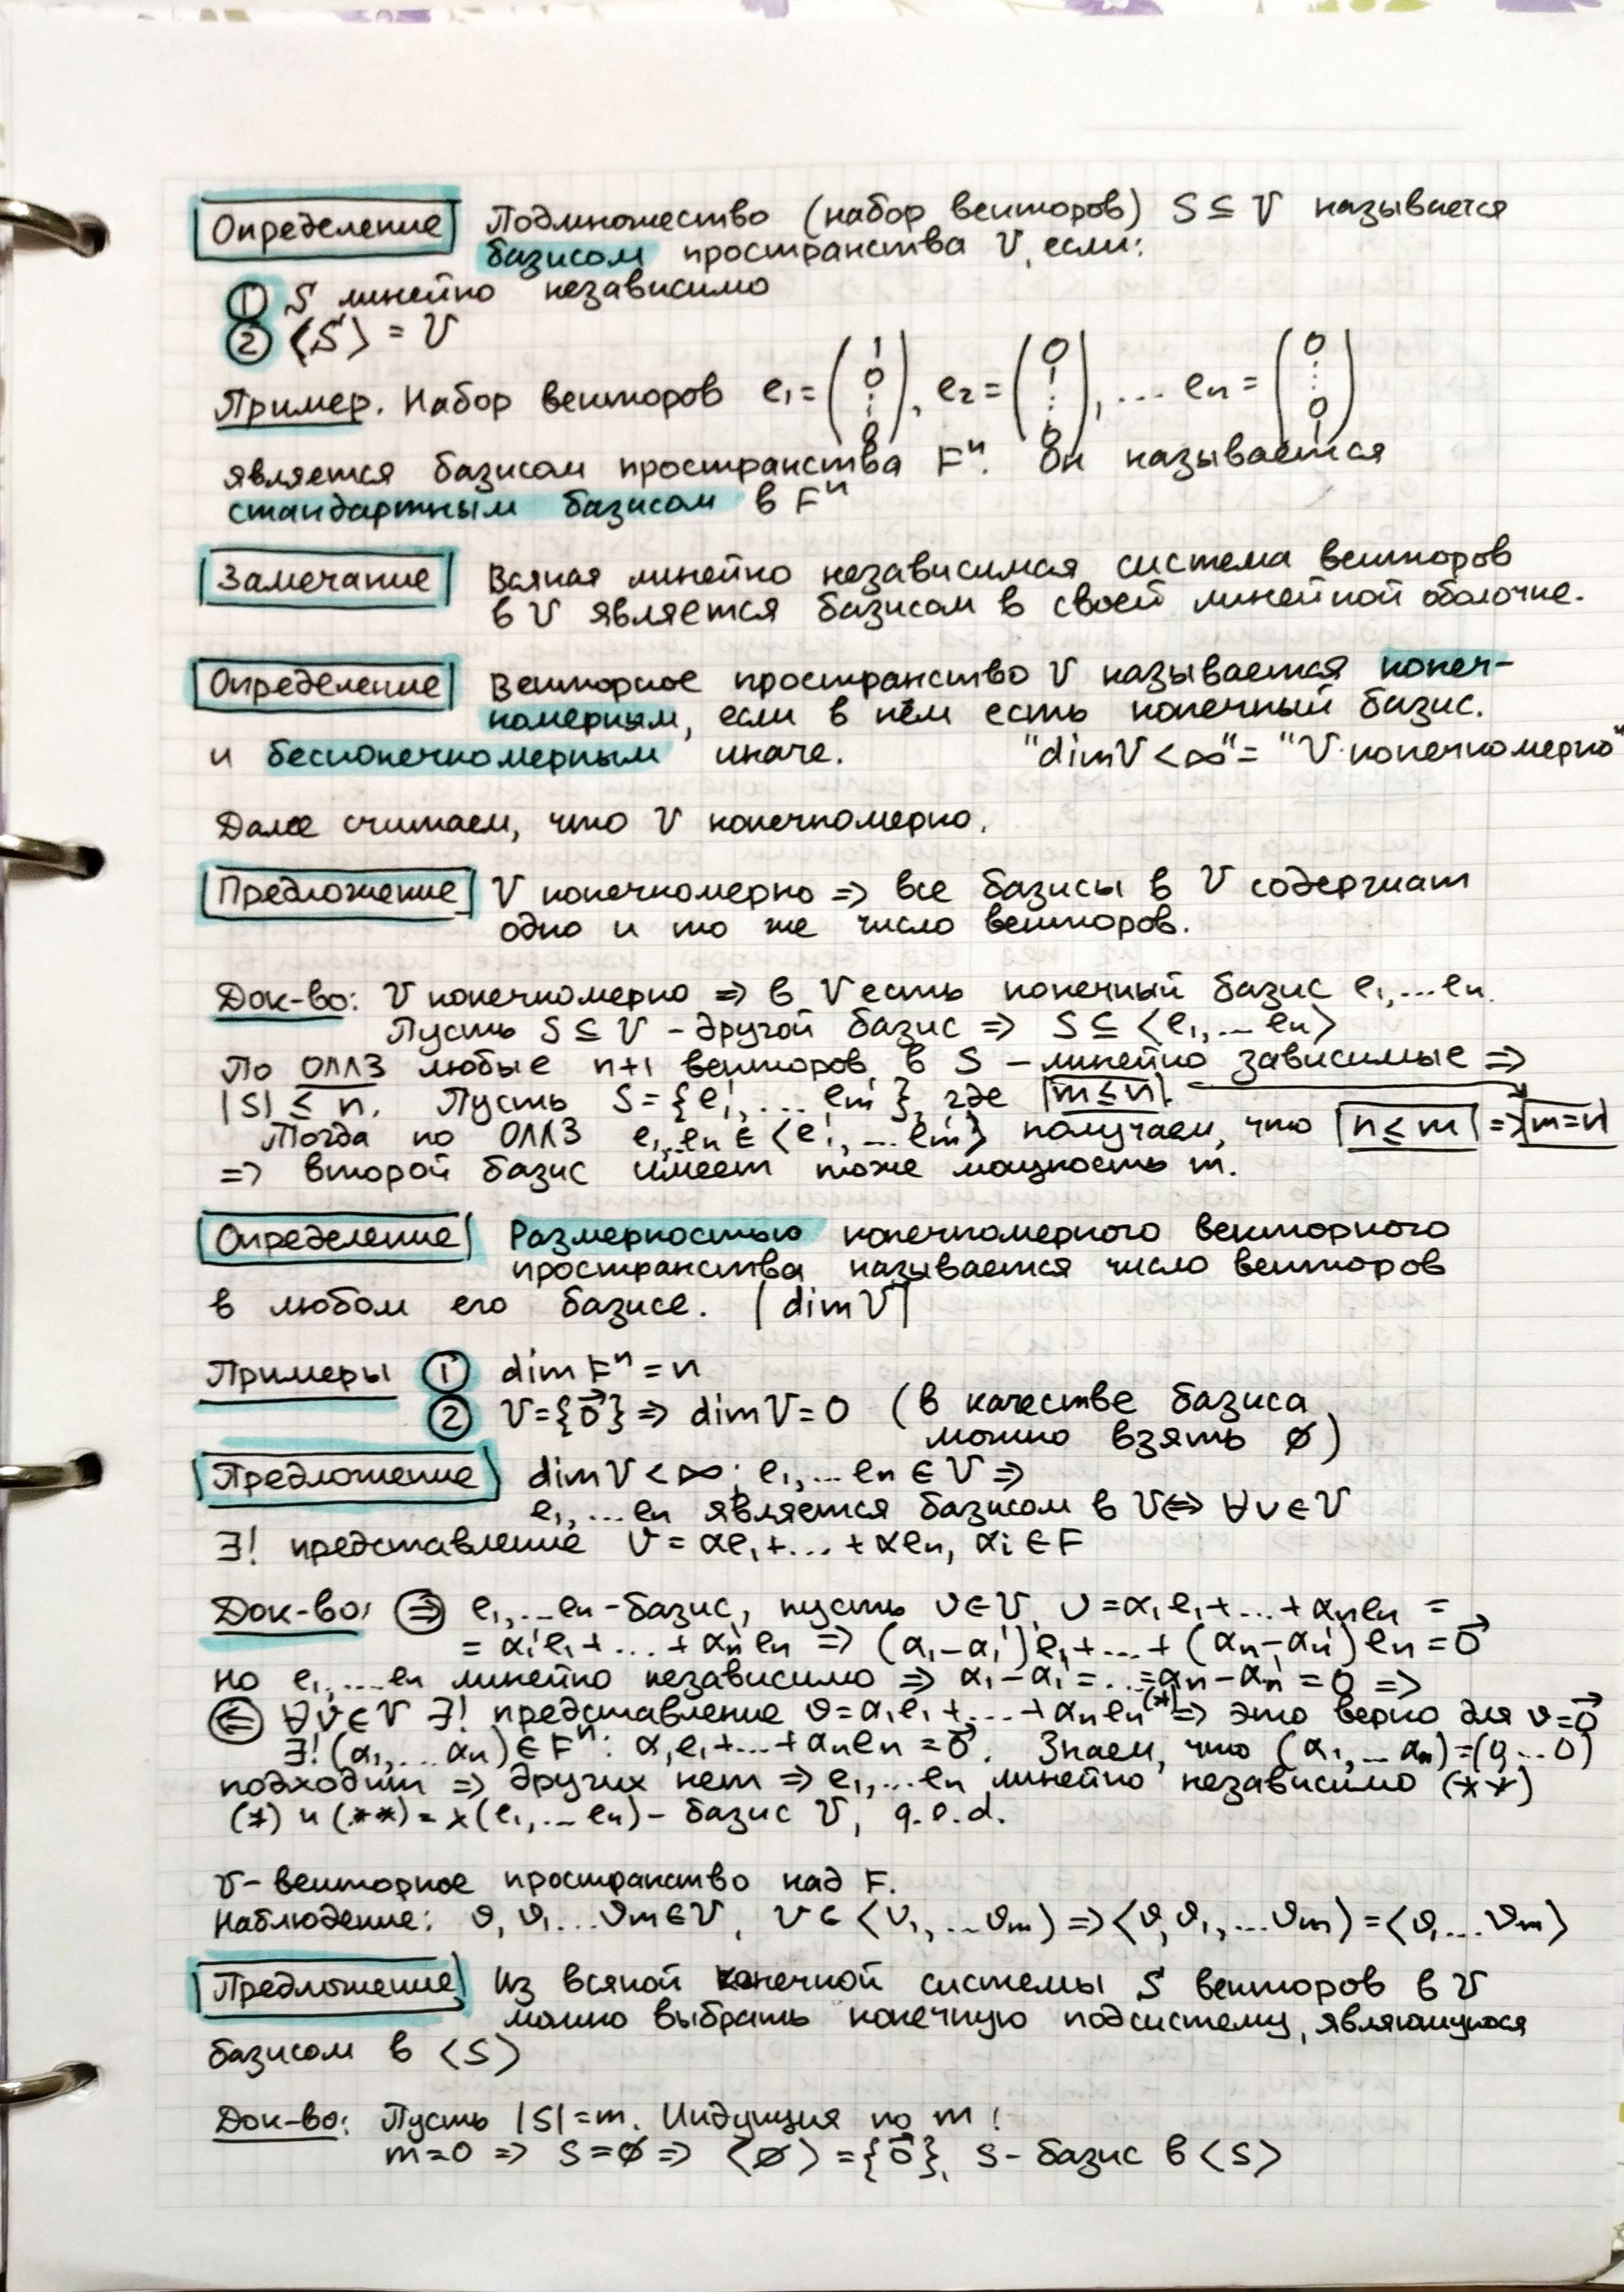 Определение Подмножество (набор векторов) S ⊆ V называется
базисом пространства V, если:
① S линейно независимо
② ⟨S⟩ = V
Пример. Набор векторов e₁ = (1 0 ⋮ 0), e₂ = (0 1 ⋮ 0), ... eₙ = (0 ⋮ 0 1)
является базисом пространства Fⁿ. Он называется
стандартным базисом в Fⁿ
Замечание Всякая линейно независимая система векторов
в V является базисом в своей линейной оболочке.
Определение Векторное пространство V называется конеч-
номерным, если в нём есть конечный базис.
и бесконечномерным иначе. "dimV < ∞" = "V конечномерно"
Далее считаем, что V конечномерно.
Предложение V конечномерно ⇒ все базисы в V содержат
одно и то же число векторов.
Док-во: V конечномерно ⇒ в V есть конечный базис e₁,...eₙ.
Пусть S ⊆ V - другой базис ⇒ S ⊆ ⟨e₁,...eₙ⟩
По ОЛЛЗ любые n+1 векторов в S - линейно зависимые ⇒
|S| ≤ n. Пусть S = {e₁',...eₘ'}, где |m ≤ n|
Тогда по ОЛЛЗ e₁,..eₙ ∈ ⟨e₁',...eₘ'⟩ получаем, что |n ≤ m| ⇒ |m = n|
⇒ второй базис имеет тоже мощность m.
Определение Размерностью конечномерного векторного
пространства называется число векторов
в любом его базисе. |dimV|
Примеры ① dim Fⁿ = n
② V = {0⃗} ⇒ dimV = 0 (в качестве базиса
можно взять ∅)
Предложение dimV < ∞; e₁,...eₙ ∈ V ⇒
e₁,...eₙ является базисом в V ⇔ ∀v ∈ V
∃! представление V = αe₁+...+αeₙ, αᵢ ∈ F
Док-во: ⇒ e₁,...eₙ - базис, пусть v ∈ V, v = α₁e₁+...+αₙeₙ =
= α₁'e₁+...+αₙ'eₙ ⇒ (α₁-α₁')e₁+...+(αₙ-αₙ')eₙ = 0⃗
но e₁,...eₙ линейно независимо ⇒ α₁-α₁' = ... = αₙ-αₙ' = 0 ⇒
⇐ ∀v ∈ V ∃! представление v = α₁e₁+...+αₙeₙ (*) ⇒ это верно для v = 0⃗
∃!(α₁,...αₙ) ∈ Fⁿ: α₁e₁+...+αₙeₙ = 0⃗. Знаем, что (α₁,...αₙ) = (0...0)
подходит ⇒ других нет ⇒ e₁,...eₙ линейно независимо (**)
(*) и (**) = x(e₁,...eₙ) - базис V, q.e.d.
V - векторное пространство над F.
Наблюдение: v, v₁...vₘ ∈ V, v ∈ ⟨v₁,...vₘ⟩ ⇒ ⟨v,v₁,...vₘ⟩ = ⟨v₁...vₘ⟩
Предложение Из всякой конечной системы S векторов в V
можно выбрать конечную подсистему, являющуюся
базисом в ⟨S⟩
Док-во: Пусть |S| = m. Индукция по m!
m = 0 ⇒ S = ∅ ⇒ ⟨∅⟩ = {0⃗}, S - базис в ⟨S⟩